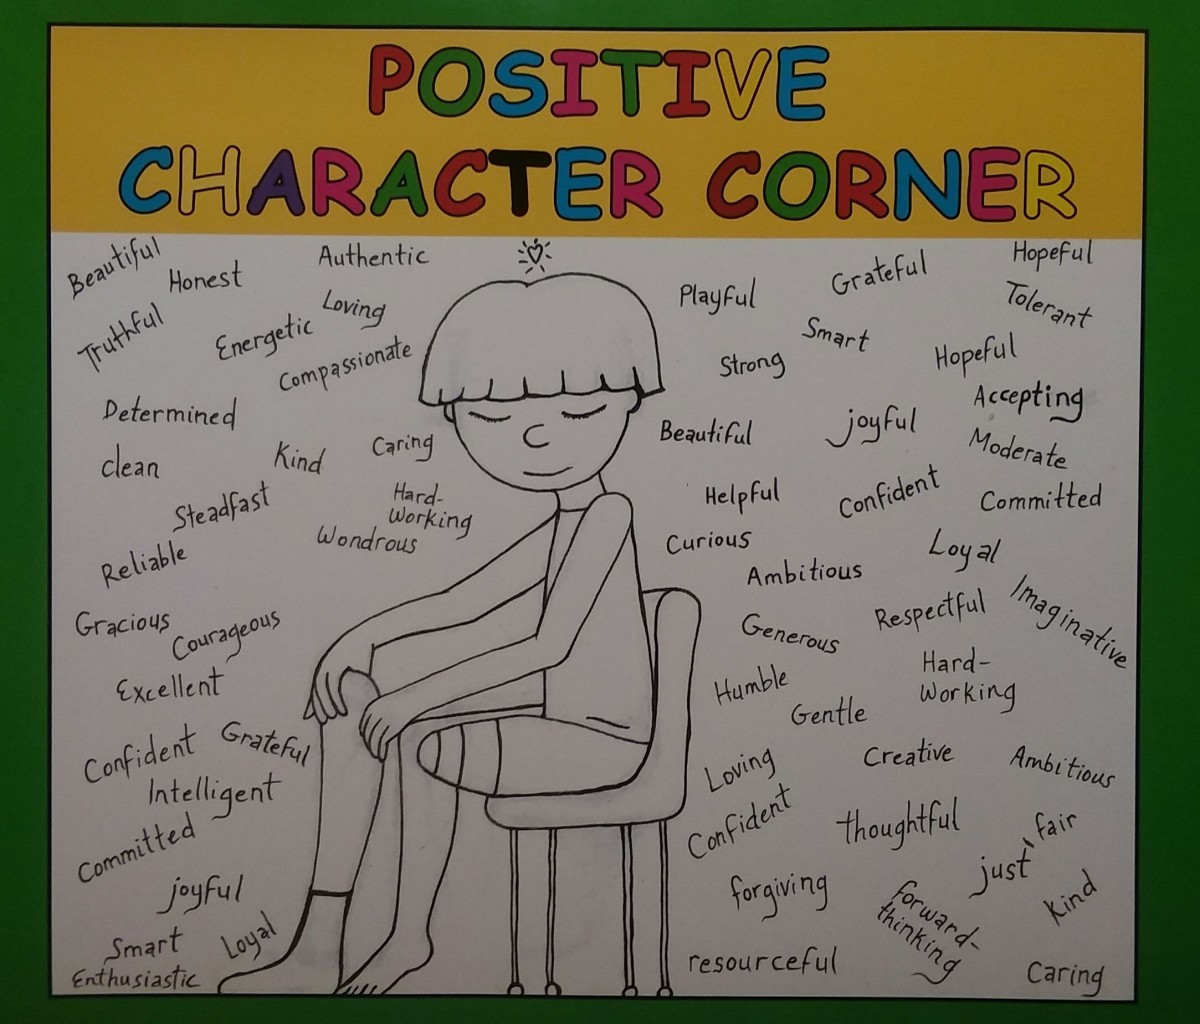 POSITIVE
CHARACTER CORNER
Beautiful
Honest
Authentic
Truthful
Energetic
Loving
Compassionate
Determined
clean
Kind
Caring
Steadfast
Hard-
Working
Wondrous
Reliable
Gracious
Courageous
Excellent
Confident
Grateful
Intelligent
Committed
joyful
Smart
Loyal
Enthusiastic
Playful
Grateful
Hopeful
Tolerant
Smart
Strong
Hopeful
Accepting
Beautiful
joyful
Moderate
Helpful
Confident
Committed
Curious
Loyal
Ambitious
Imaginative
Generous
Respectful
Humble
Hard-
Working
Gentle
Loving
Creative
Ambitious
Confident
thoughtful
fair
just
forgiving
forward-
thinking
Kind
resourceful
Caring